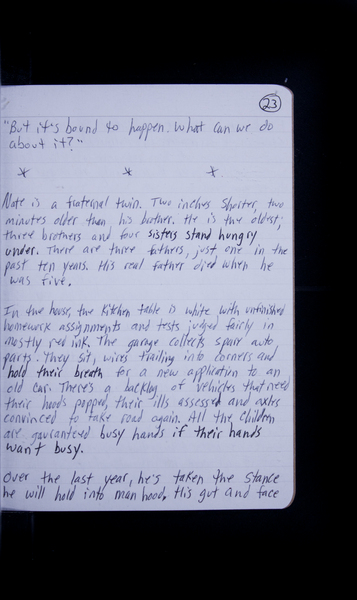 23
"But it's bound to happen. What can we do
about it?"
* * *
Nate is a fraternal twin. Two inches shorter, two
minutes older than his brother. He is the oldest;
three brothers and four sisters stand hungry
under. There are three fathers, just one in the
past ten years. His real father died when he
was five.
In the house, the kitchen table is white with unfinished
homework assignments and tests judged fairly in
mostly red ink. The garage collects spare auto
parts. They sit, wires trailing into corners and
hold their breath for a new application to an
old car. There's a backlog of vehicles that need
their hoods popped, their ills assessed and axles
convinced to take road again. All the children
are gauranteed busy hands if their hands
want busy.
Over the last year, he's taken the stance
he will hold into manhood. His gut and face